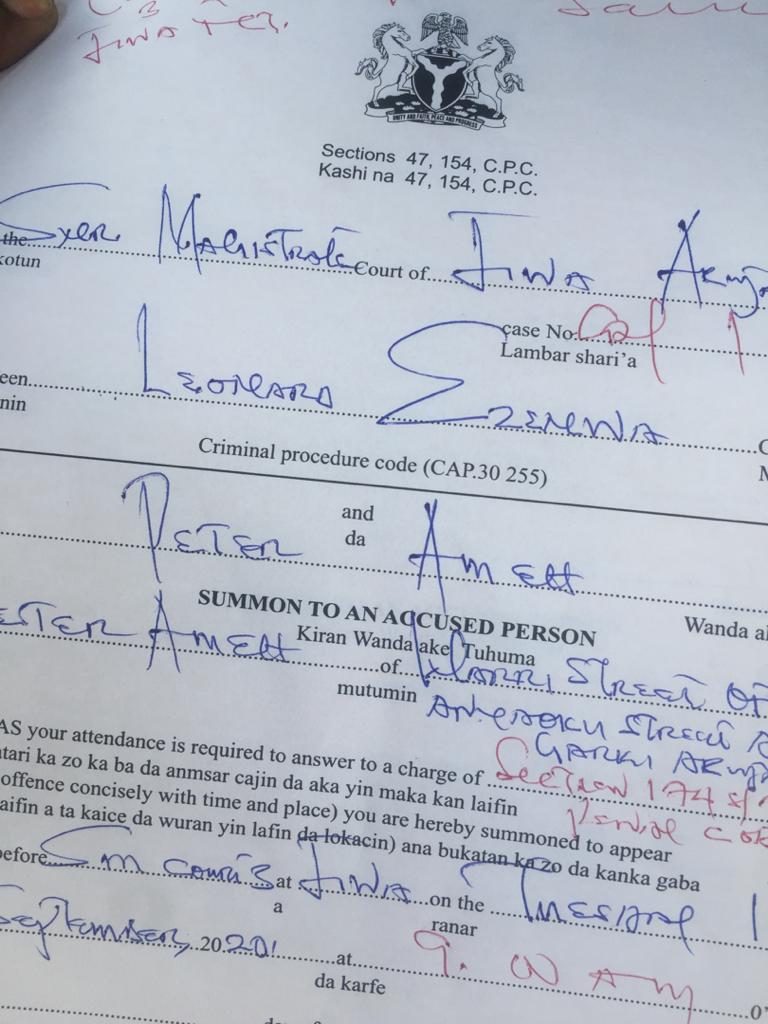 JIWA
UNITY AND FAITH, PEACE AND PROGRESS
Sections 47, 154, C.P.C.
Kashi na 47, 154, C.P.C.
the Magistrate Court of JIWA
kotun
case No.
Lambar shari'a
een LEONARD EZENWA
nin
Criminal procedure code (CAP.30 255)
and
da
PETER AMEH
SUMMON TO AN ACCUSED PERSON
Kiran Wanda ake Tuhuma
Wanda a
ETER AMEH of STREET
mutumin STREET
GARKI
AS your attendance is required to answer to a charge of Section 174
atari ka zo ka ba da anmsar cajin da aka yin maka kan laifin
offence concisely with time and place) you are hereby summoned to appear
laifin a ta kaice da wuran yin lafin da lokacin) ana bukatan ka zo da kanka gaba
before at JIWA on the TUESDAY
a ranar
September, 2020 at 9.00 AM
da karfe